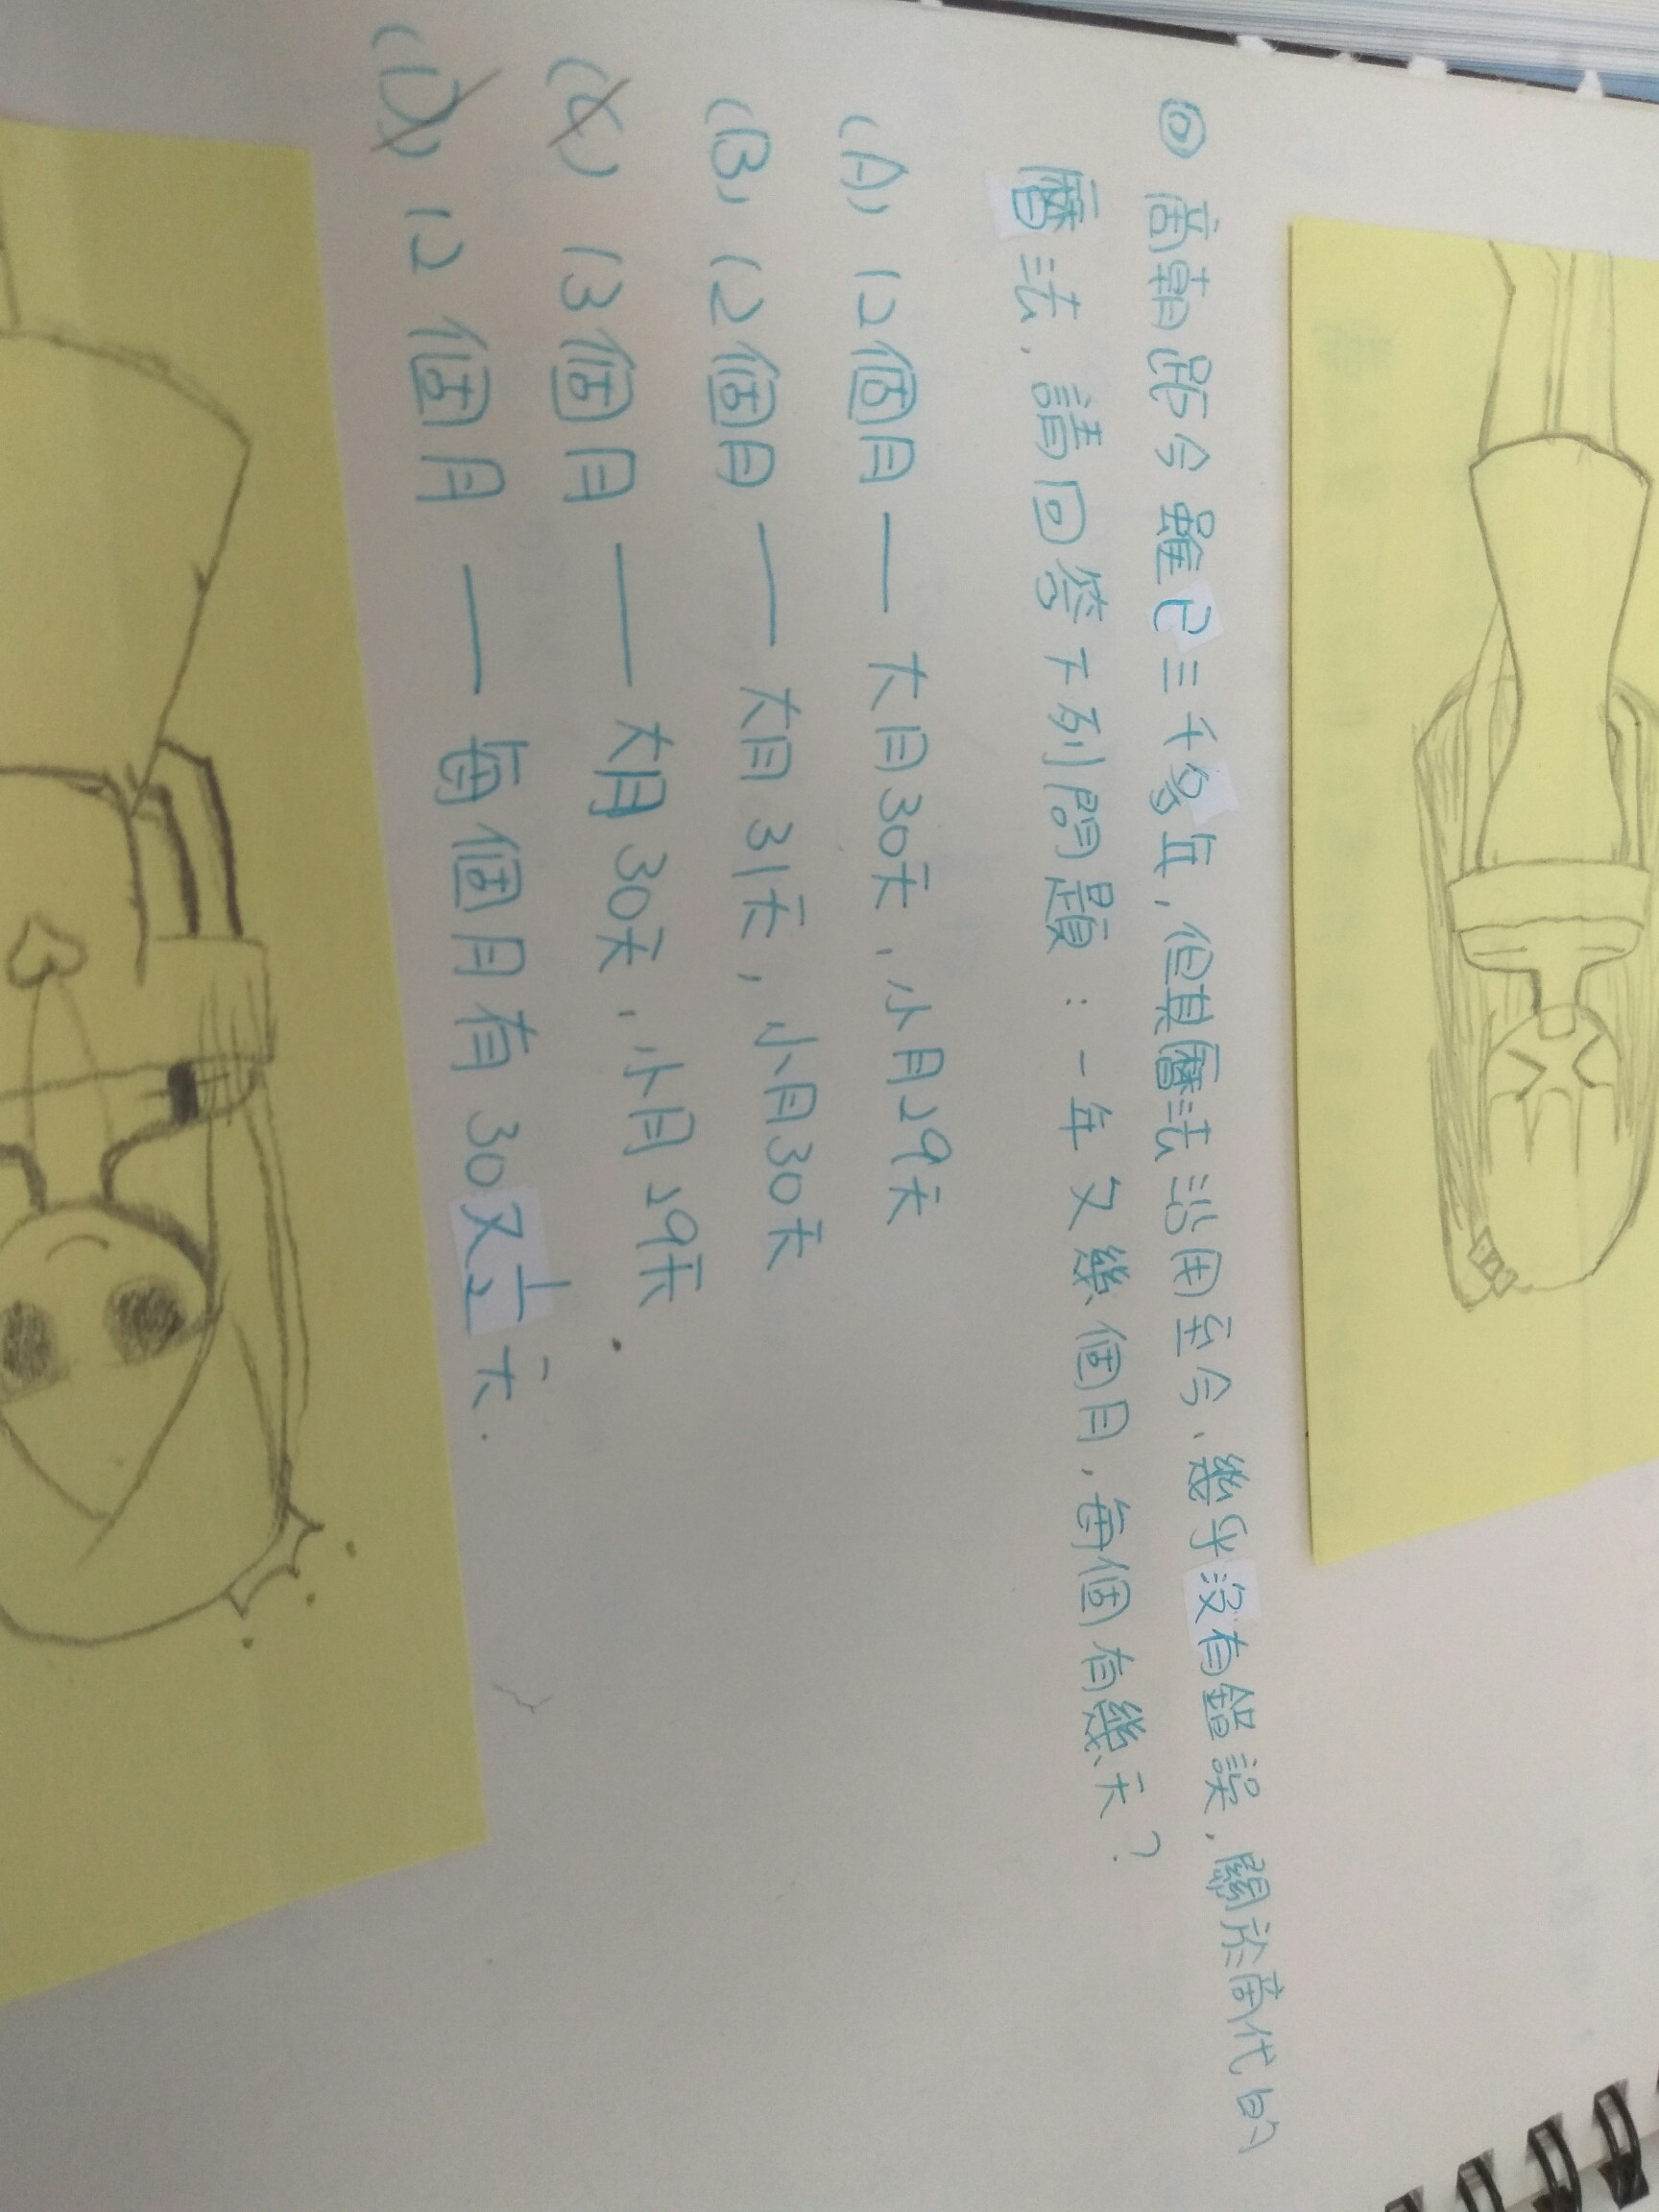 ◎ 商朝距今雖已三千多年，但其曆法沿用至今、幾乎沒有錯誤，關於商代的
曆法，請回答下列問題：一年又幾個月，每個有幾天？
(A) 12個月 — 大月30天，小月29天
(B) 12個月 — 大月31天，小月30天
(C) 13個月 — 大月30天，小月29天
(D) 12個月 — 每個月有30又1/2天.